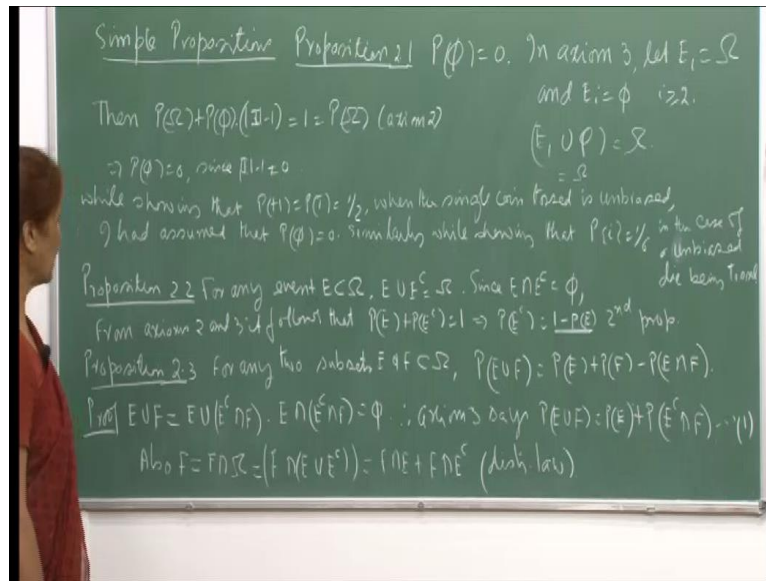 Simple Propositions Proposition 2.1 P(ϕ)=0. In axiom 3, let E₁=Ω
and Eᵢ=ϕ i≥2.
Then P(Ω)+P(ϕ).(|I|-1)=1=P(Ω) (axiom 2)
(E₁ ∪ ϕ)=Ω.
=Ω
⇒ P(ϕ)=0, since |I|-1≠0
while showing that P(H)=P(T)=1/2, when the single coin tossed is unbiased,
I had assumed that P(ϕ)=0. Similarly while showing that P(i)=1/6 in the case of
unbiased
die being
Proposition 2.2 For any event E⊂Ω, E∪Eᶜ=Ω. Since E∩Eᶜ=ϕ,
from axioms 2 and 3 it follows that P(E)+P(Eᶜ)=1 ⇒ P(Eᶜ)=1-P(E) 2ⁿᵈ prop.
Proposition 2.3 For any two subsets E & F⊂Ω, P(E∪F)=P(E)+P(F)-P(E∩F).
Proof E∪F=E∪(Eᶜ∩F). E∩(Eᶜ∩F)=ϕ ∴, axiom 3 says P(E∪F)=P(E)+P(Eᶜ∩F)...(1)
Also F=F∩Ω=(F∩(E∪Eᶜ))=F∩E+F∩Eᶜ (distr. law)